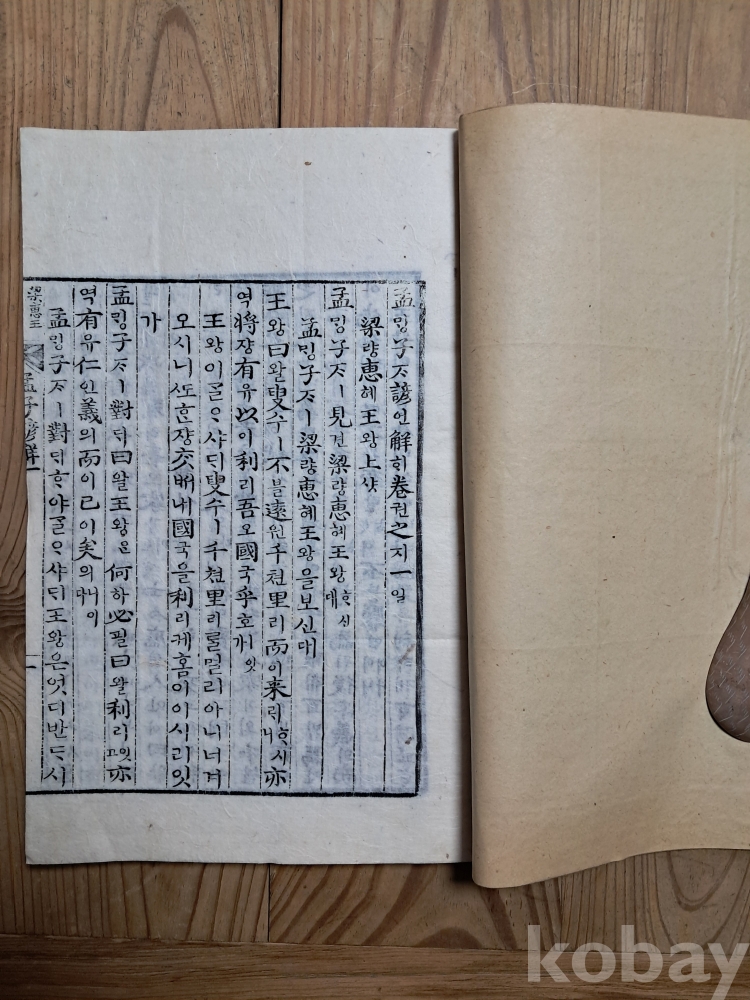 孟ᄆᆡᆼ子ᄌᆞ諺언解ᄒᆡ卷권之지一일
梁량惠혜王왕上샹
孟ᄆᆡᆼ子ᄌᆞㅣ見견梁량惠혜王왕ᄒᆞ신대
孟ᄆᆡᆼ子ᄌᆞㅣ梁량惠혜王왕을보신대
王왕曰왈叟수ㅣ不블遠원千쳔里리而이來ᄅᆡᄒᆞ시니亦
역將쟝有유以이利리吾오國국乎호잇가
王왕이ᄀᆞᆯᄋᆞ샤ᄃᆡ叟수ㅣ千쳔里리ᄅᆞᆯ멀리아니너겨
오시니ᄯᅩᄒᆞᆫ쟝ᄎᆞ내國국을利리케홈이이시리잇
가
孟ᄆᆡᆼ子ᄌᆞㅣ對ᄃᆡ曰왈王왕은何하必필曰왈利리잇고亦
역有유仁인義의而이已이矣의니이다
孟ᄆᆡᆼ子ᄌᆞㅣ對ᄃᆡᄒᆞ야ᄀᆞᆯᄋᆞ샤ᄃᆡ王왕은엇디반ᄃᆞ시
梁惠王
孟子諺解
一
kobay